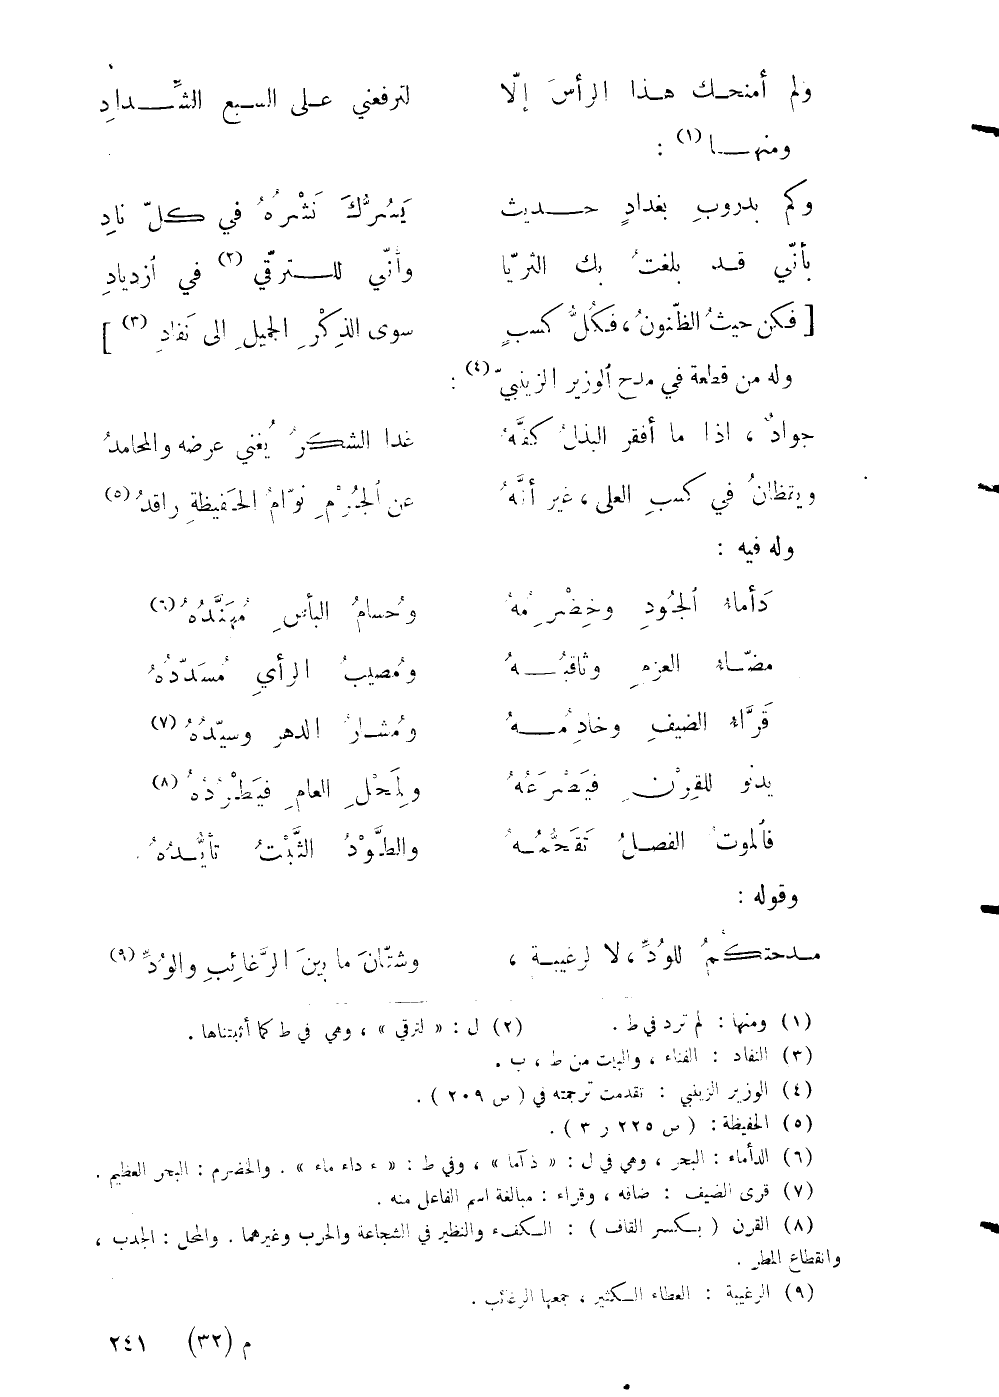 ولم أمنحك هذا الرأسَ إلّا لترفعني على السبع الشِّدادِ
ومنها (١) :
وكم بدروبِ بغدادٍ حديث يَسُرُّكَ نَشْرُهُ في كلّ نادِ
بأنّي قد بلغتُ بك الثريّا وأنّي للترقّي (٢) في ازديادِ
[ فكن حيثُ الظّنونُ، فكُلُّ كسبٍ سوى الذِكْرِ الجميلِ الى نَفادِ (٣) ]
وله من قطعة في مدح الوزير الزينبيّ (٤) :
جوادٌ ، اذا ما أفقر البذلُ كفَّهُ غدا الشكرُ يُغني عرضه والمحامدُ
ويقظانُ في كسبِ العلى ، غير أنَّهُ عن الجُرْمِ نوّامُ الحَفيظةِ راقدُ (٥)
وله فيه :
دَأماءُ الجُودِ وخِضْرِمُهُ وحُسامُ البأسِ مُهَنَّدُهُ (٦)
مضّاءُ العزمِ وثاقبُهُ ومُصيبُ الرأيِ مُسَدّدُهُ
قَرَّاءُ الضيفِ وخادِمُهُ ومُشارُ الدهر وسيّدُهُ (٧)
يدنو للقِرْنِ فيَصْرَعُهُ ولمَحْلِ العامِ فيَطْرُدُهُ (٨)
فالموتُ الفصلُ تَقَحُّمُهُ والطَّوْدُ الثَّبْتُ تأيُّدُهُ .
وقوله :
مدحتكمُ للوُدِّ، لا لرغيبة ، وشتّانَ ما بينَ الرَّغائبِ والوُدِّ (٩)
(١) ومنها : لم ترد في ط . (٢) ل : « لترقي » ، وهي في ط كما أثبتناها .
(٣) النفاد : الفناء ، والبيت من ط ، ب .
(٤) الوزير الزينبي : تقدمت ترجمته في ( ص ٢٠٩ ) .
(٥) الحفيظة : ( ص ٢٢٥ ر ٣ ) .
(٦) الدأماء : البحر ، وهي في ل : « ذآما » ، وفي ط : « ء داء ماء » . والخضرم : البحر العظيم .
(٧) قرى الضيف : ضافه ، وقراء : مبالغة اسم الفاعل منه .
(٨) القرن ( بكسر القاف ) : الكفء والنظير في الشجاعة والحرب وغيرهما . والمحل : الجدب ،
وانقطاع المطر .
(٩) الرغيبة : العطاء الكثير ، جمعها الرغائب .
م (٣٢) ٢٤١